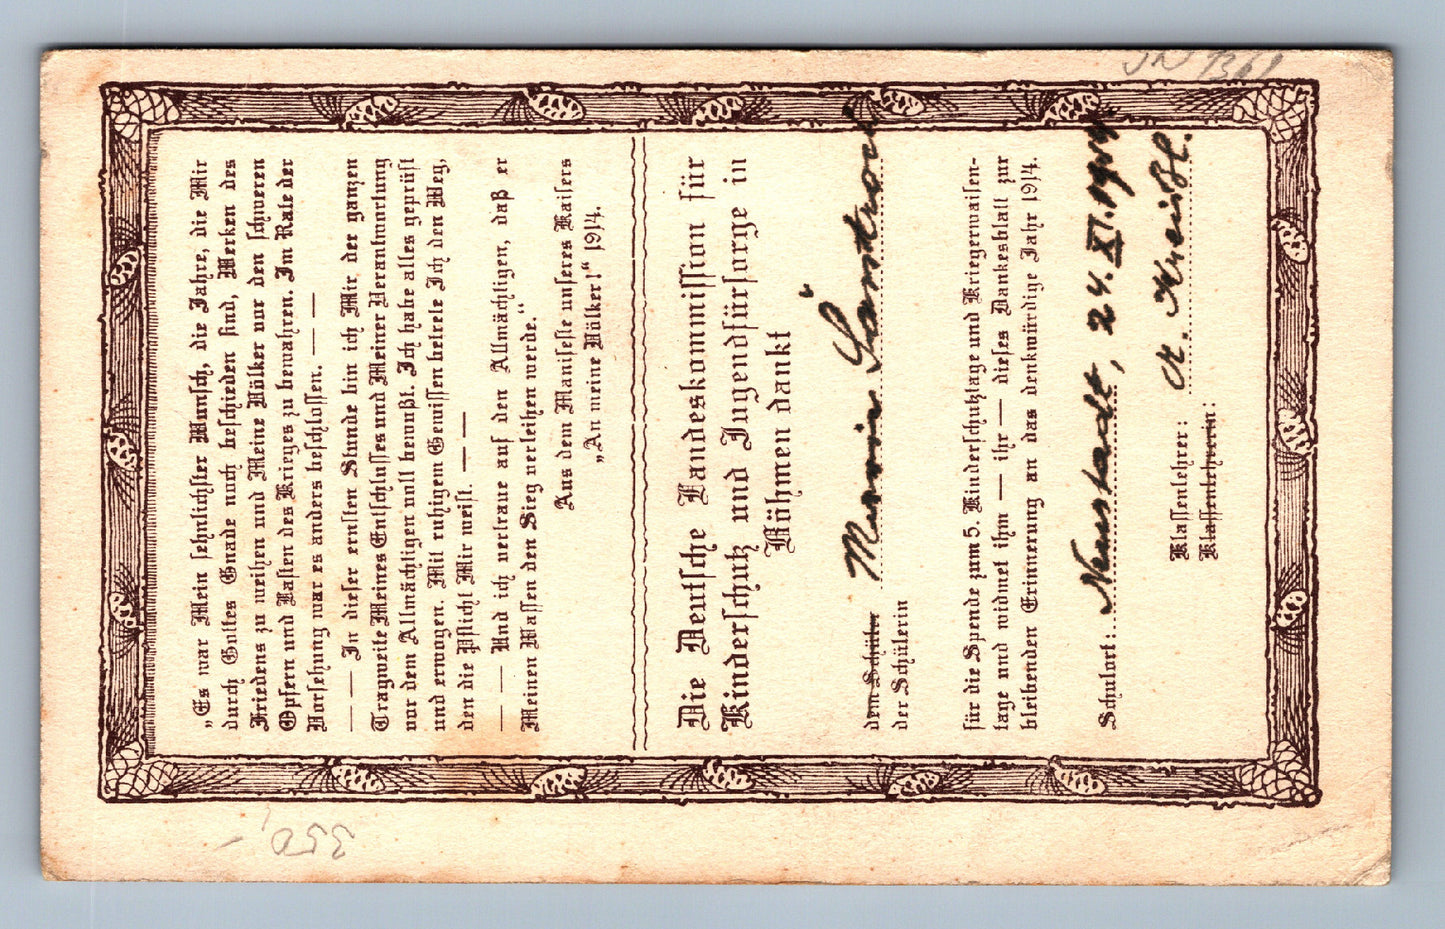 „Es war Mein sehnlichster Wunsch, die Jahre, die Mir
durch Gottes Gnade noch beschieden sind, Werken des
Friedens zu weihen und Meine Völker vor den schweren
Opfern und Lasten des Krieges zu bewahren. Im Rate der
Vorsehung war es anders beschlossen. — —
— — In dieser ernsten Stunde bin ich Mir der ganzen
Tragweite Meines Entschlusses und Meiner Verantwortung
vor dem Allmächtigen voll bewußt. Ich habe alles geprüft
und erwogen. Mit ruhigem Gewissen betrete Ich den Weg,
den die Pflicht Mir weist. — —
— — Und ich vertraue auf den Allmächtigen, daß er
Meinen Waffen den Sieg verleihen werde.“
Aus dem Manifeste unseres Kaisers
„An meine Völker!“ 1914.
Die Deutsche Landeskommission für
Kinderschutz und Jugendfürsorge in
Böhmen dankt
dem Schüler
der Schülerin Marie
für die Spende zum 5. Kinderschutztage und Kriegerwaisen-
tage und widmet ihm — ihr — dieses Dankesblatt zur
bleibenden Erinnerung an das denkwürdige Jahr 1914.
Schulort: Neustadt, 24. XI. 1914.
Klassenlehrer: A.
Klassenlehrerin:
350,-